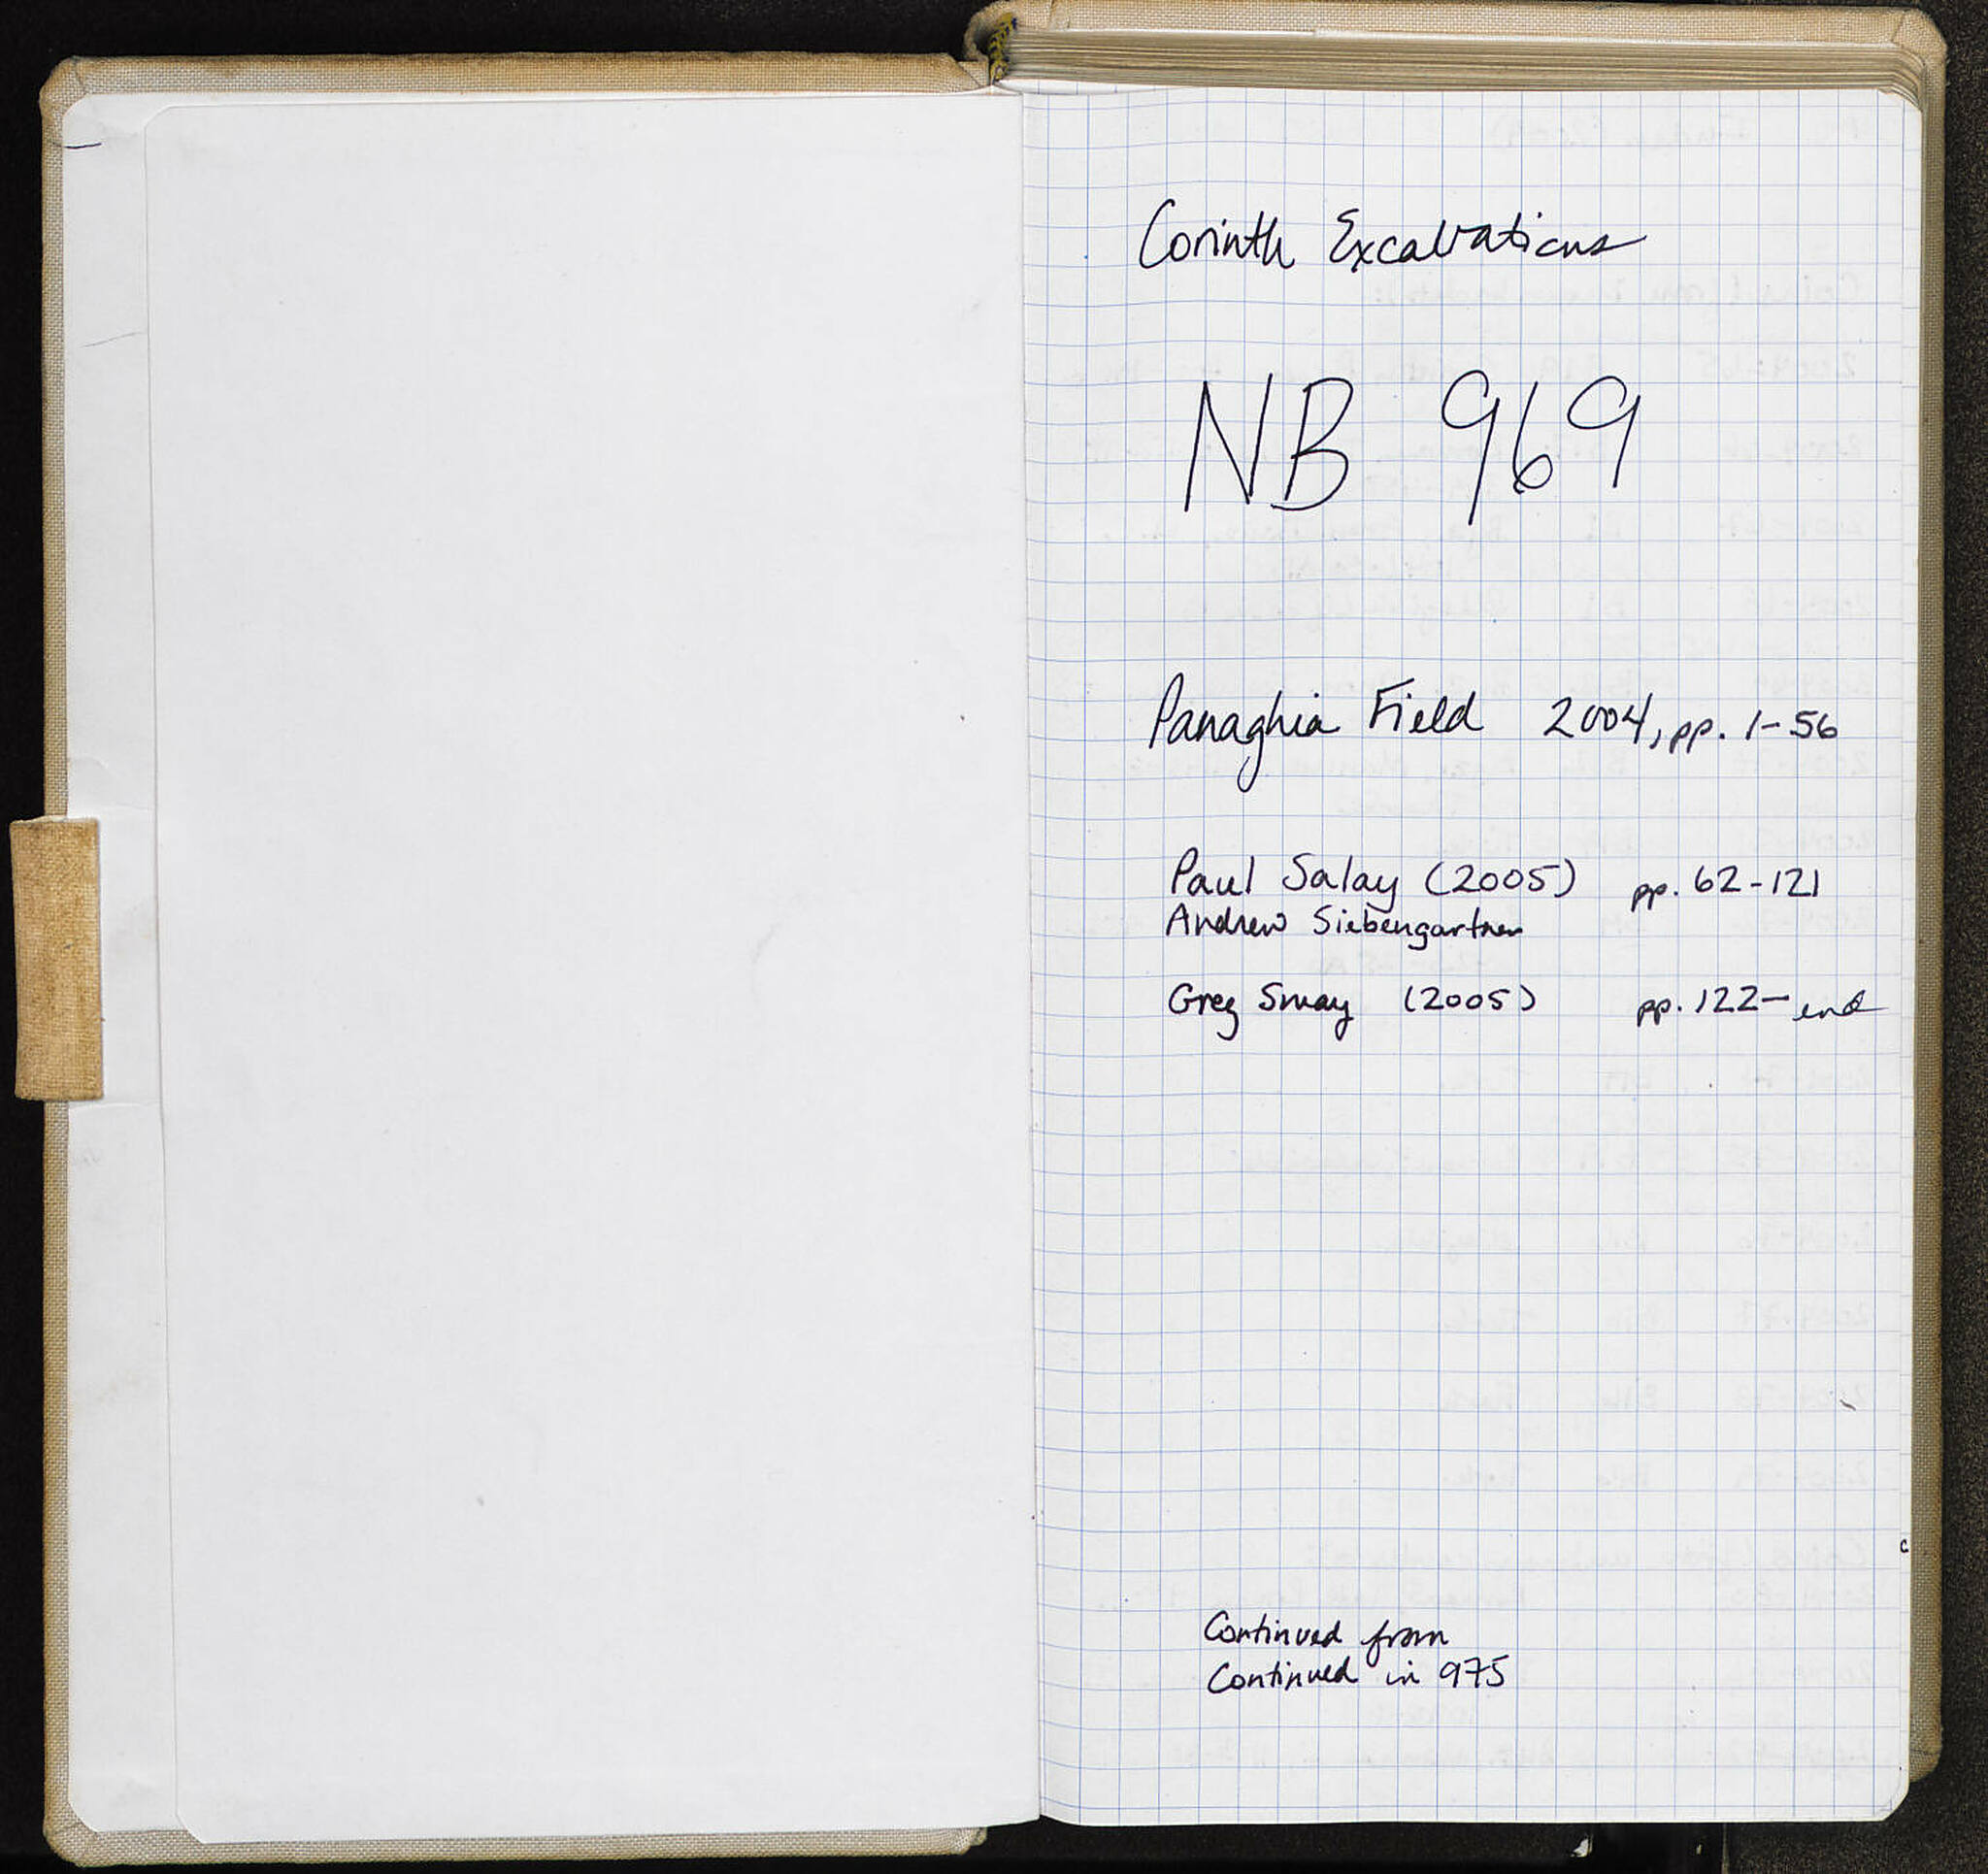 Corinth Excavations
NB 969
Panaghia Field 2004, pp. 1-56
Paul Salay (2005) pp. 62-121
Andrew Siebengartner
Greg Smay (2005) pp. 122- end
Continued from
Continued in 975